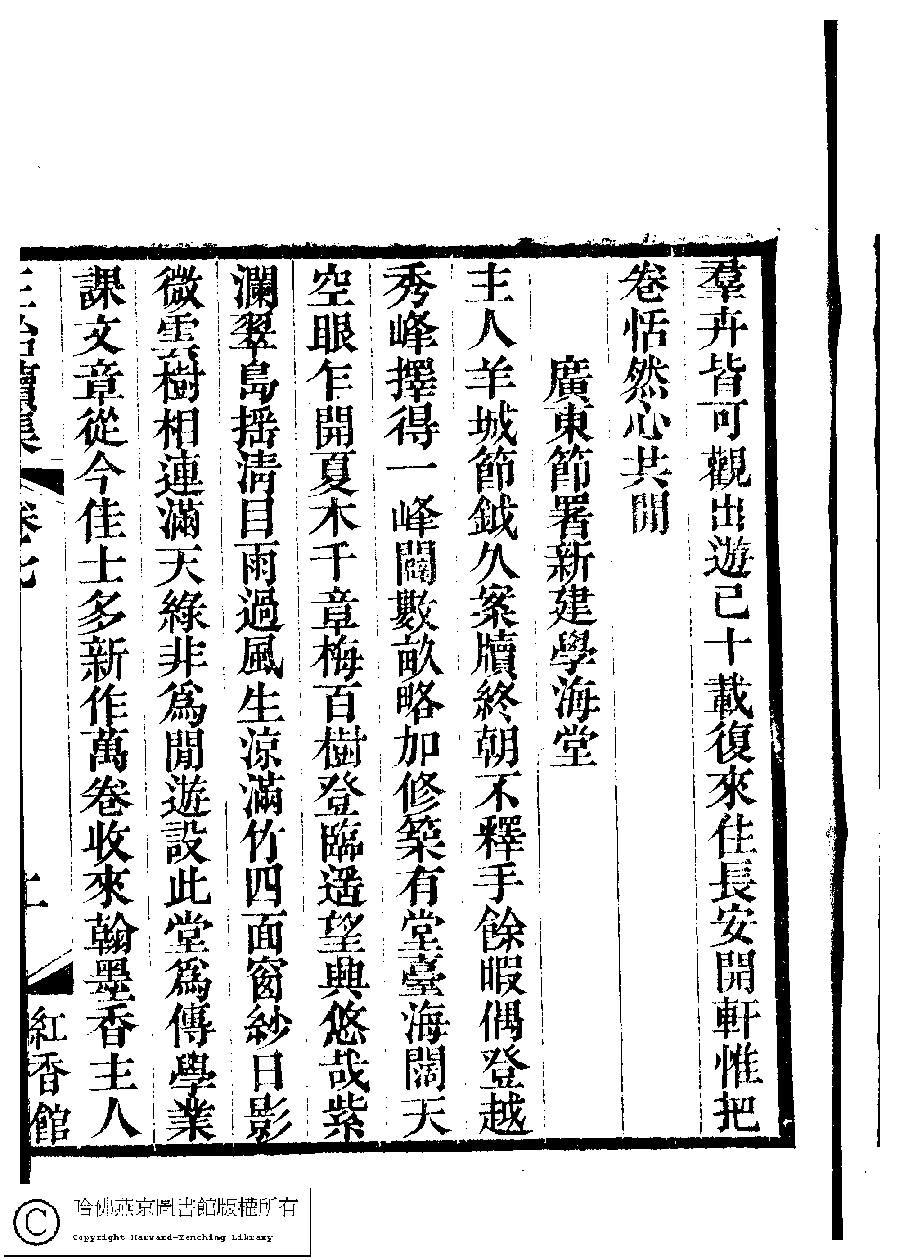 羣卉皆可觀出遊已十載復來住長安開軒惟把
卷恬然心共開
廣東節署新建學海堂
主人羊城節鉞久案牘終朝不釋手餘暇偶登越
秀峰擇得一峰闢數畝略加修築有堂臺海闊天
空眼乍開夏木千章梅百樹登臨遥望興悠哉紫
瀾翠島摇清目雨過風生涼滿竹四面窗紗日影
微雲樹相連滿天綠非爲閒遊設此堂爲傳學業
課文章從今佳士多新作萬卷收來翰墨香主人
集 卷七 紅香館
哈佛燕京圖書館版權所有
Copyright Harvard-Yenching Library